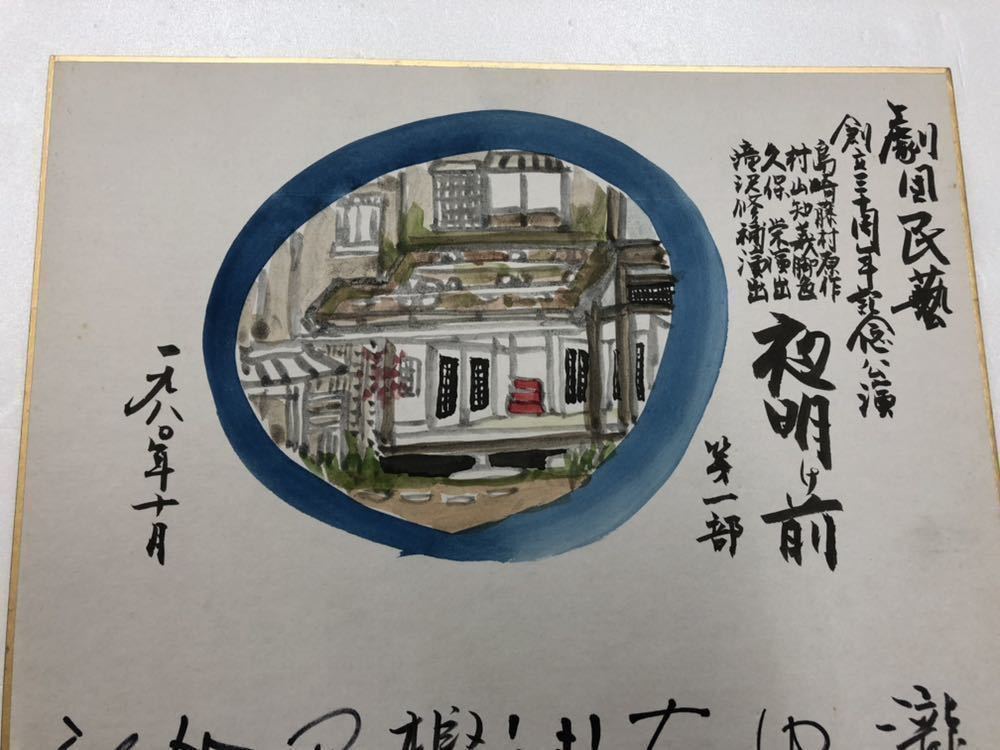 劇団民藝
創立三十周年記念公演
島崎藤村原作
村山知義脚色
久保栄演出
滝沢修補演出
夜明け前
第一部
一九八〇年十月
瀧